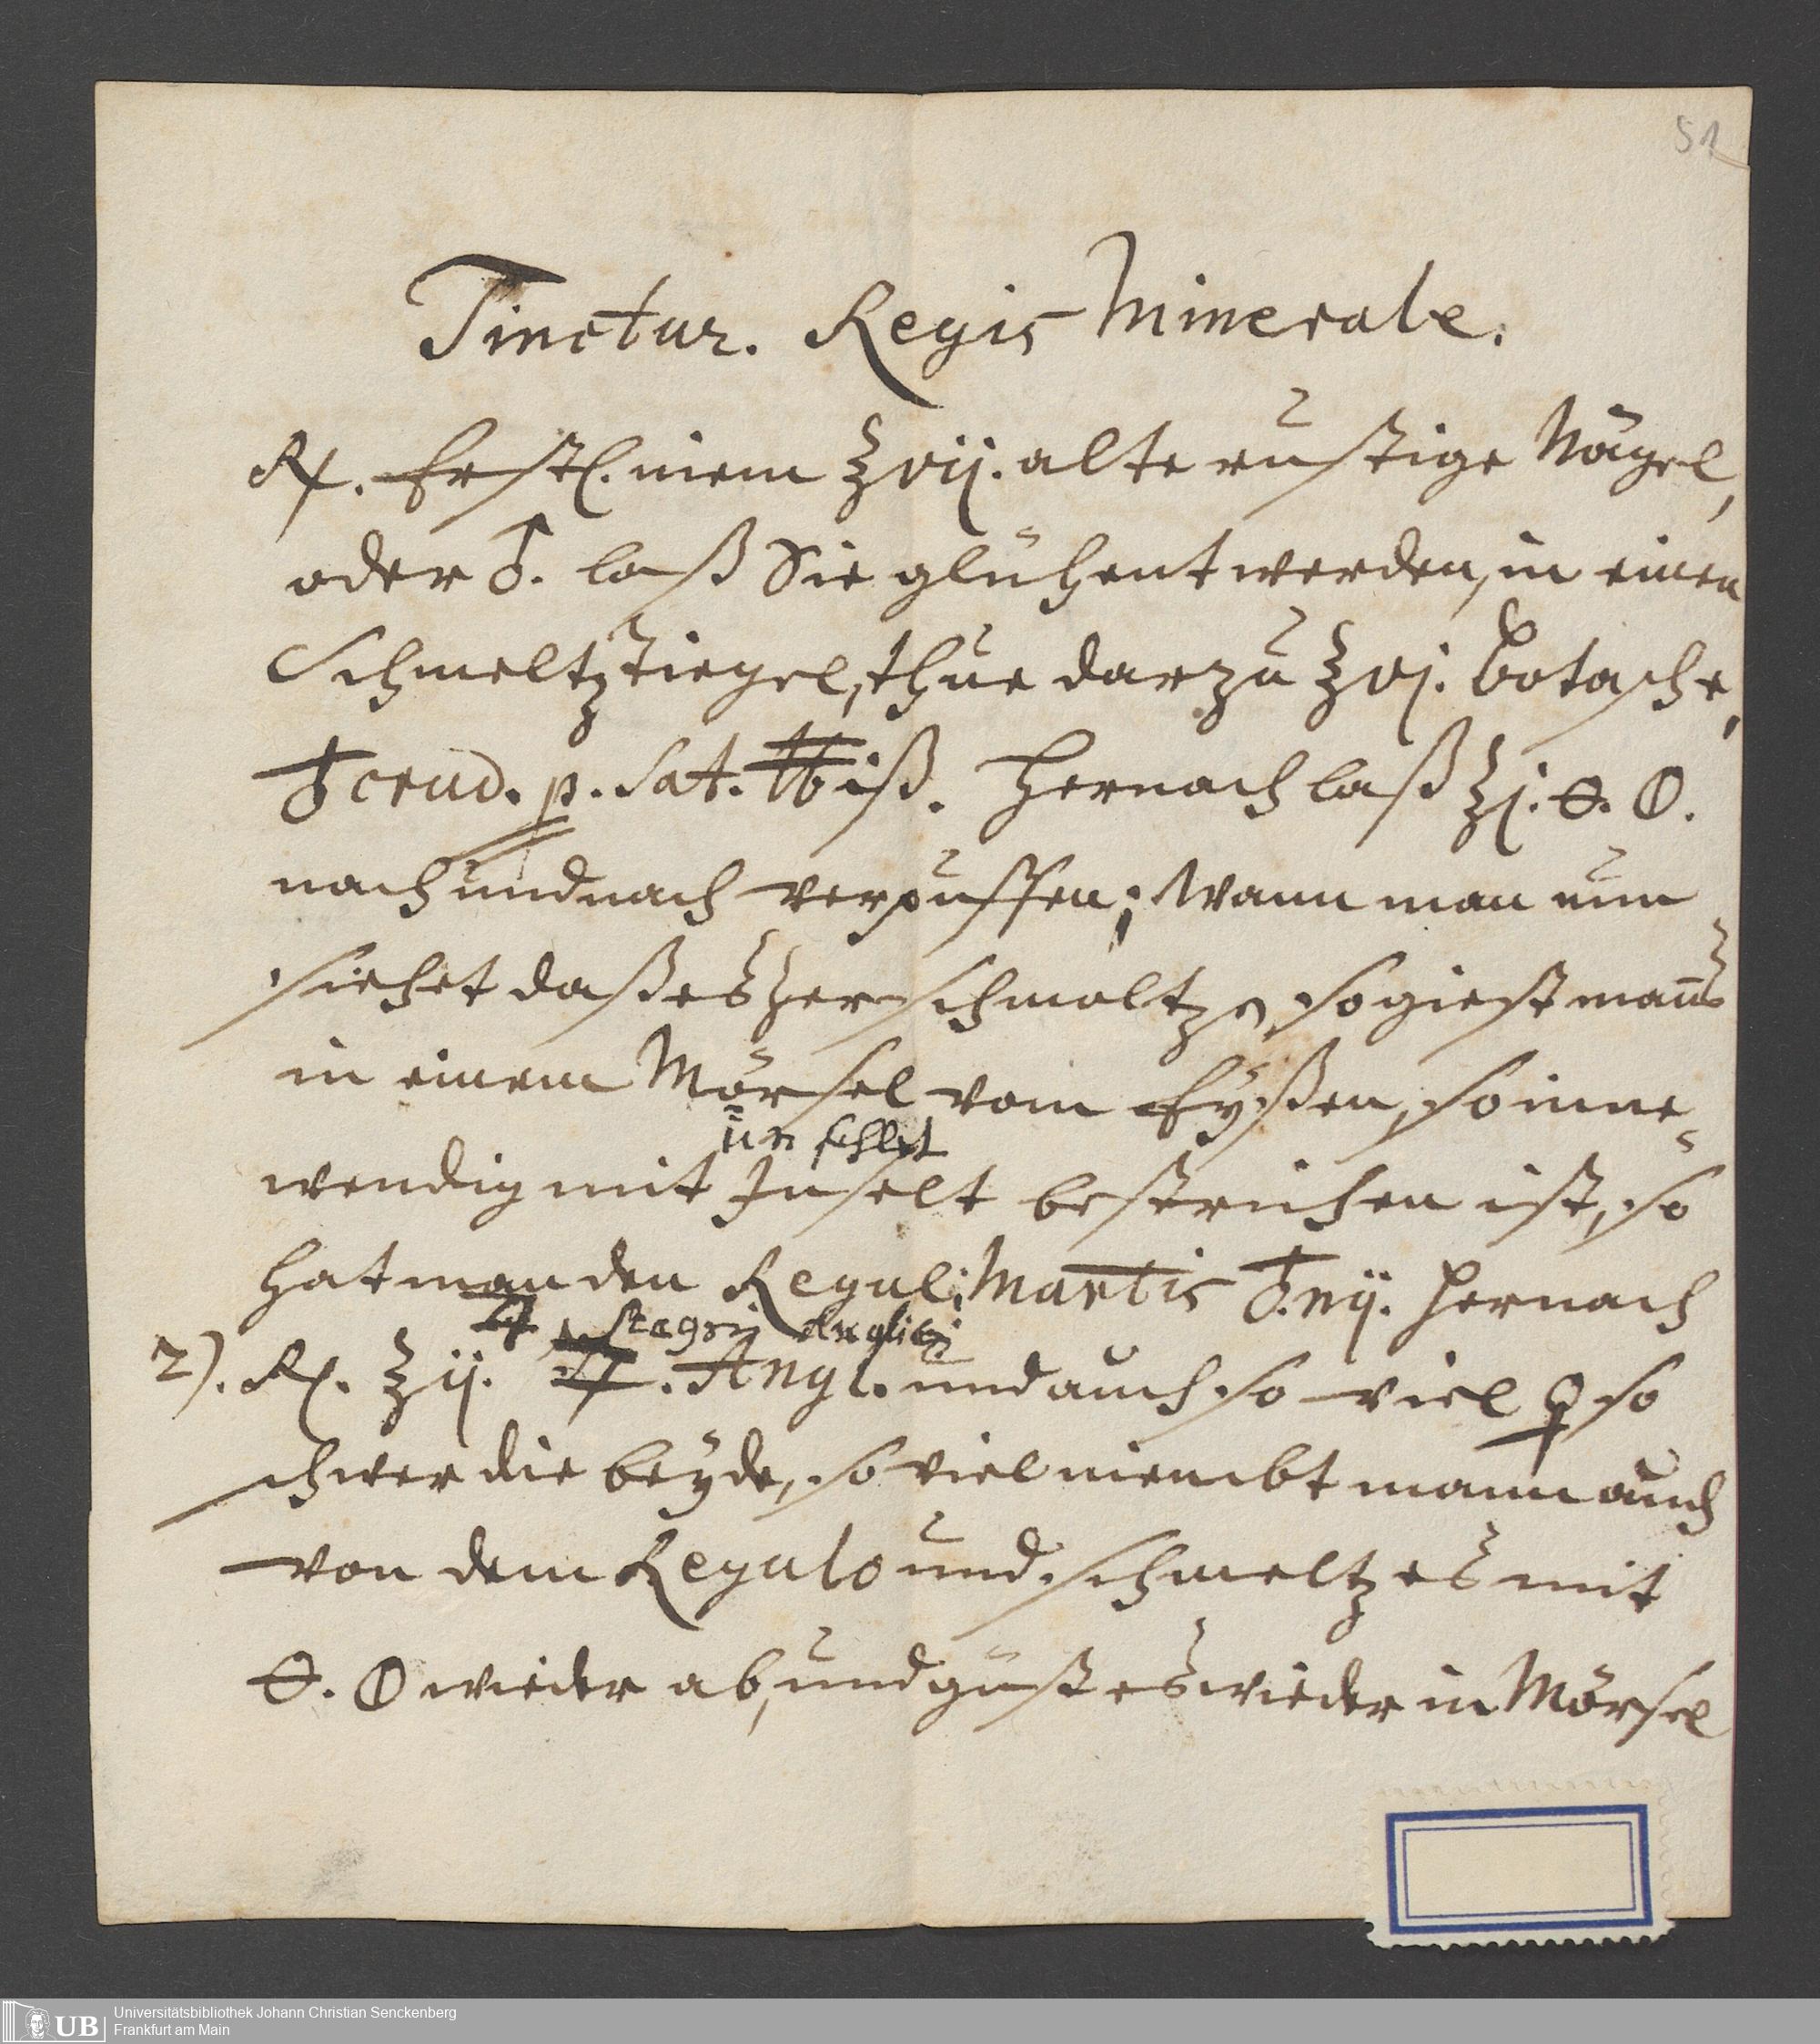 51
Tinctur. Regis Minerale.
Rx. Erstl. niem ℥vij. alte rustige Nägel,
oder ♂. laß Sie glühent werden, in einen
Schmeltztiegel, thue darzu ℥vj. Botasche,
♁ crud. p. Sat. ℔iß. Hernach laß ℥j. 🜔. 🜕.
nach und nach verpuffen; Wann man nun
siehet daß es zerschmoltzen, so giest mans
in einem Mörsel vom Eyßen, so inne-
wendig mit Inselt bestrichen ist, so
unschlet
hat man den Reguli Martis ♁.nij. Hernach
♃ Anglici
2). Rx. ℥ij. ♃. Angl. und auch so viel ♀ so
schwer die beyde, so viel niembt mann auch
von dem Regulo und schmeltz es mit
🜔. 🜕 wieder ab, und güst es wieder in Mörsel
UB
Universitätsbibliothek Johann Christian Senckenberg
Frankfurt am Main